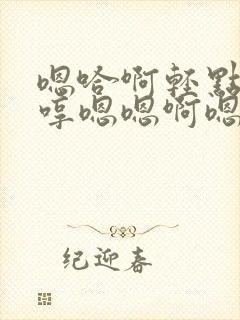 嗯哈啊轻點
哼嗯嗯啊嗯
纪迎春